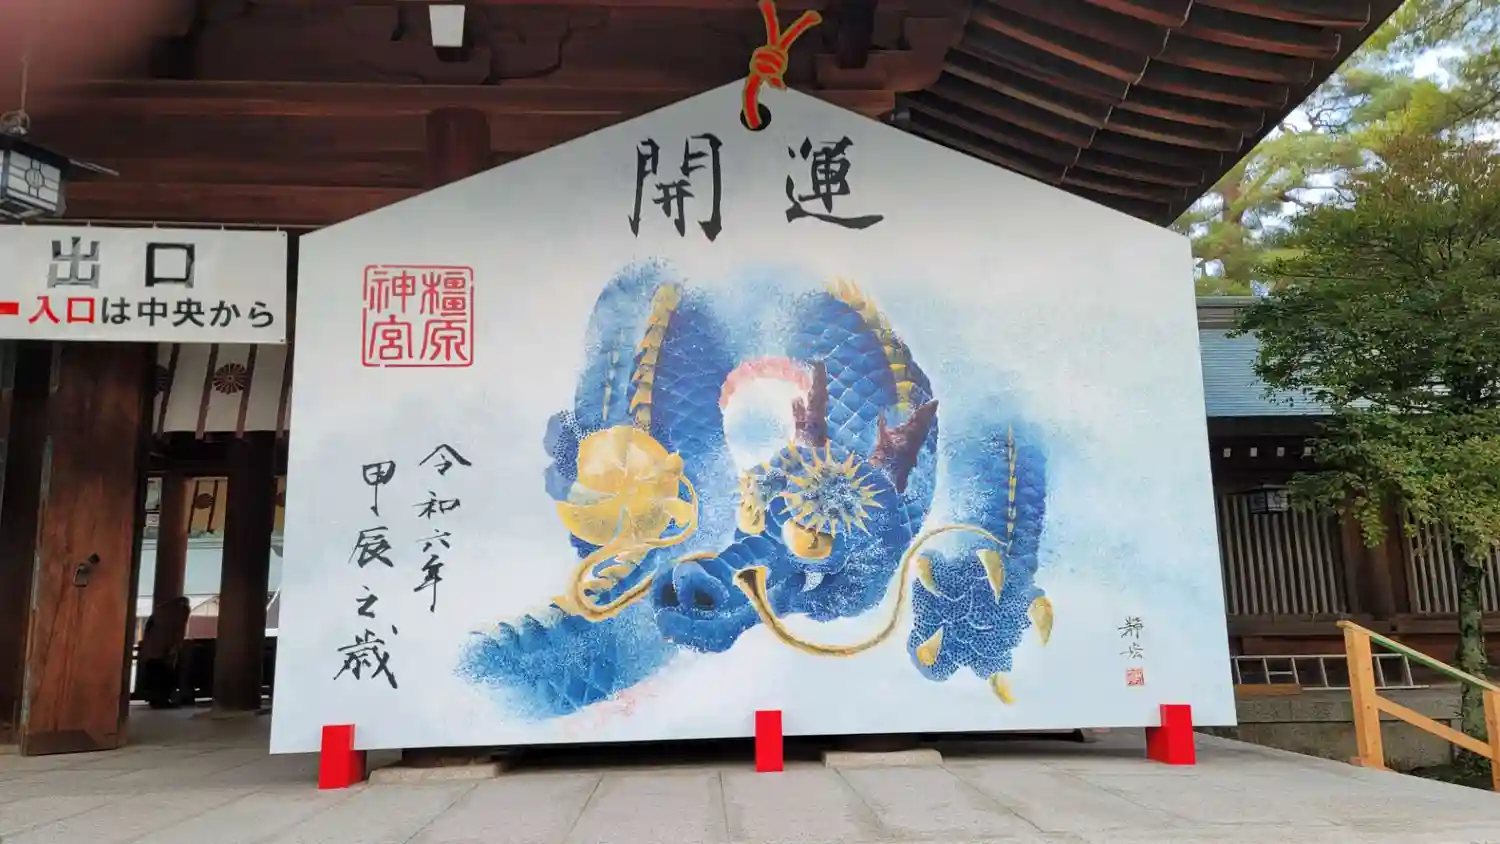 開運
橿原
神宮
令和六年
甲辰之歳
出口
入口は中央から